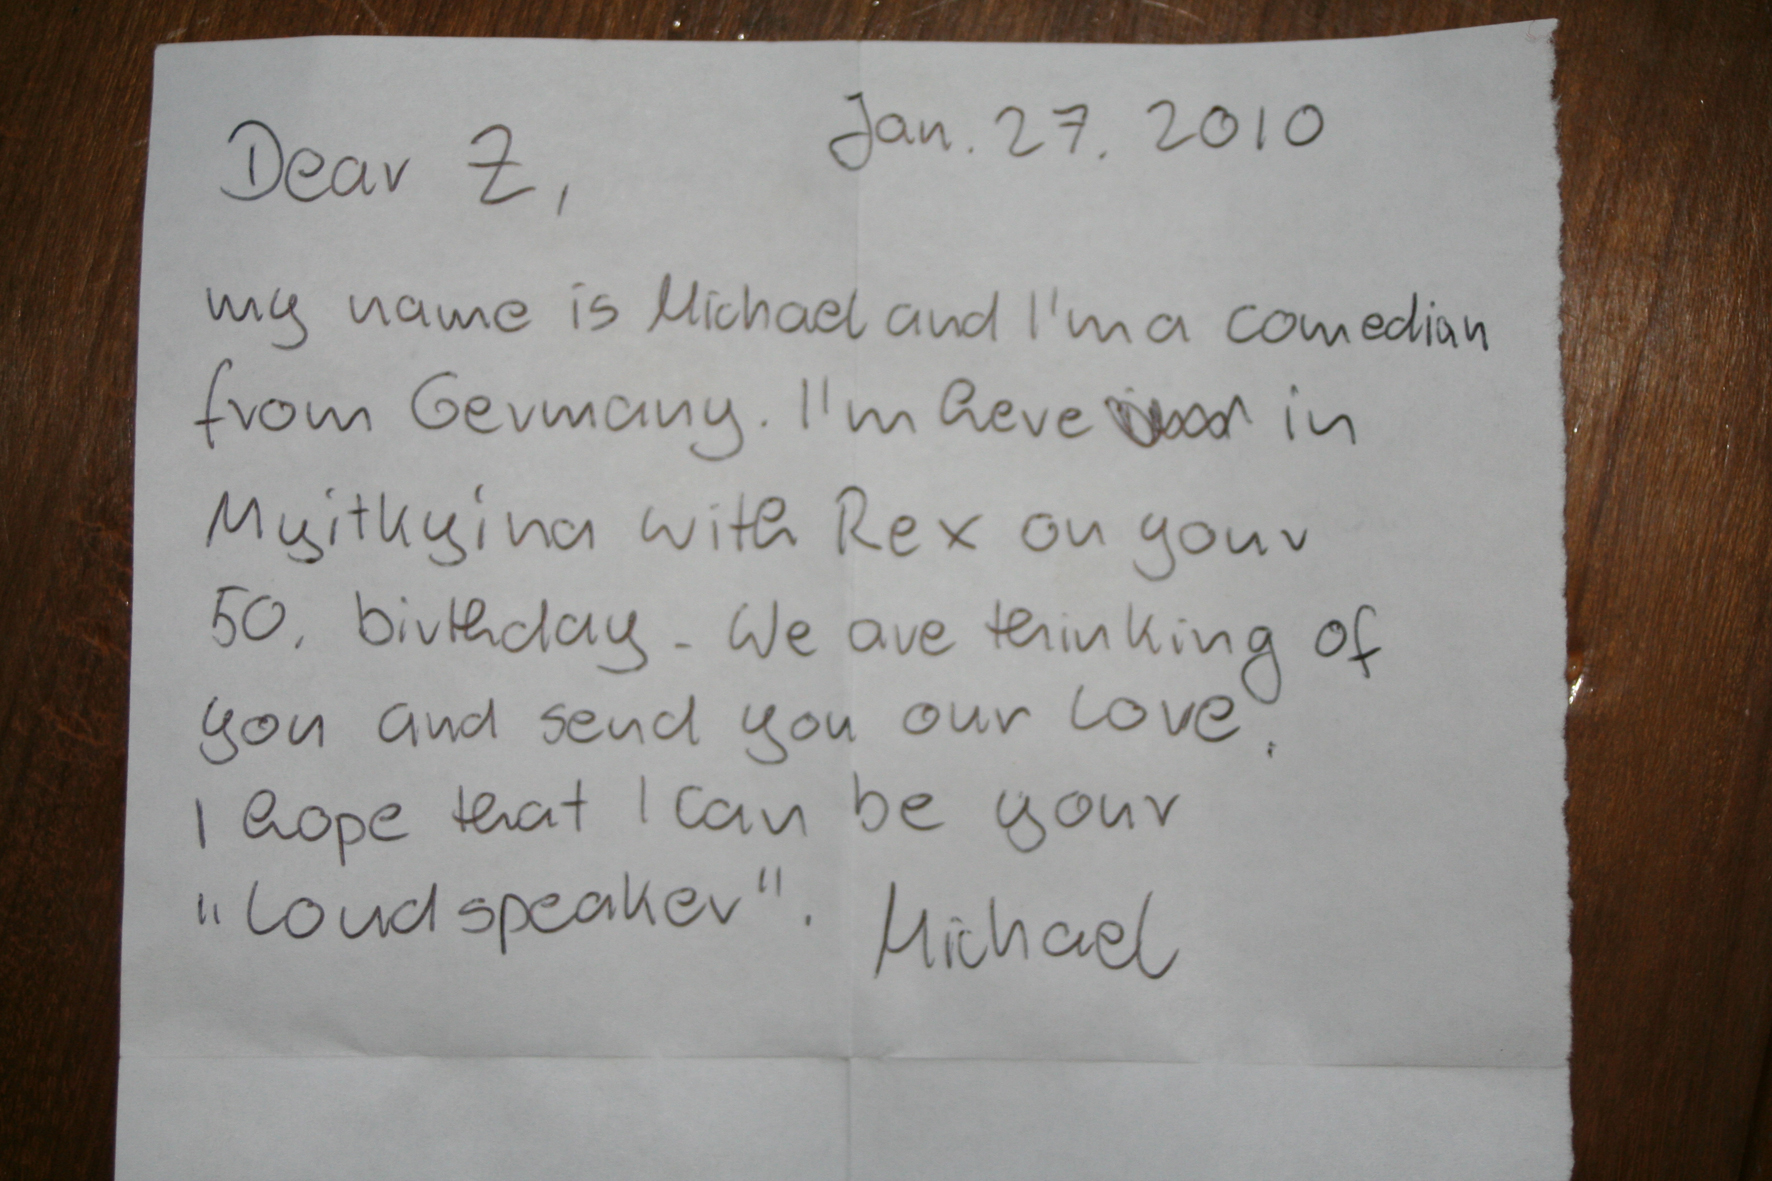 Jan. 27. 2010
Dear Z,
my name is Michael and I'm a comedian
from Germany. I'm here in
Myitkyina with Rex on your
50. birthday - We are thinking of
you and send you our love.
I hope that I can be your
"loudspeaker". Michael